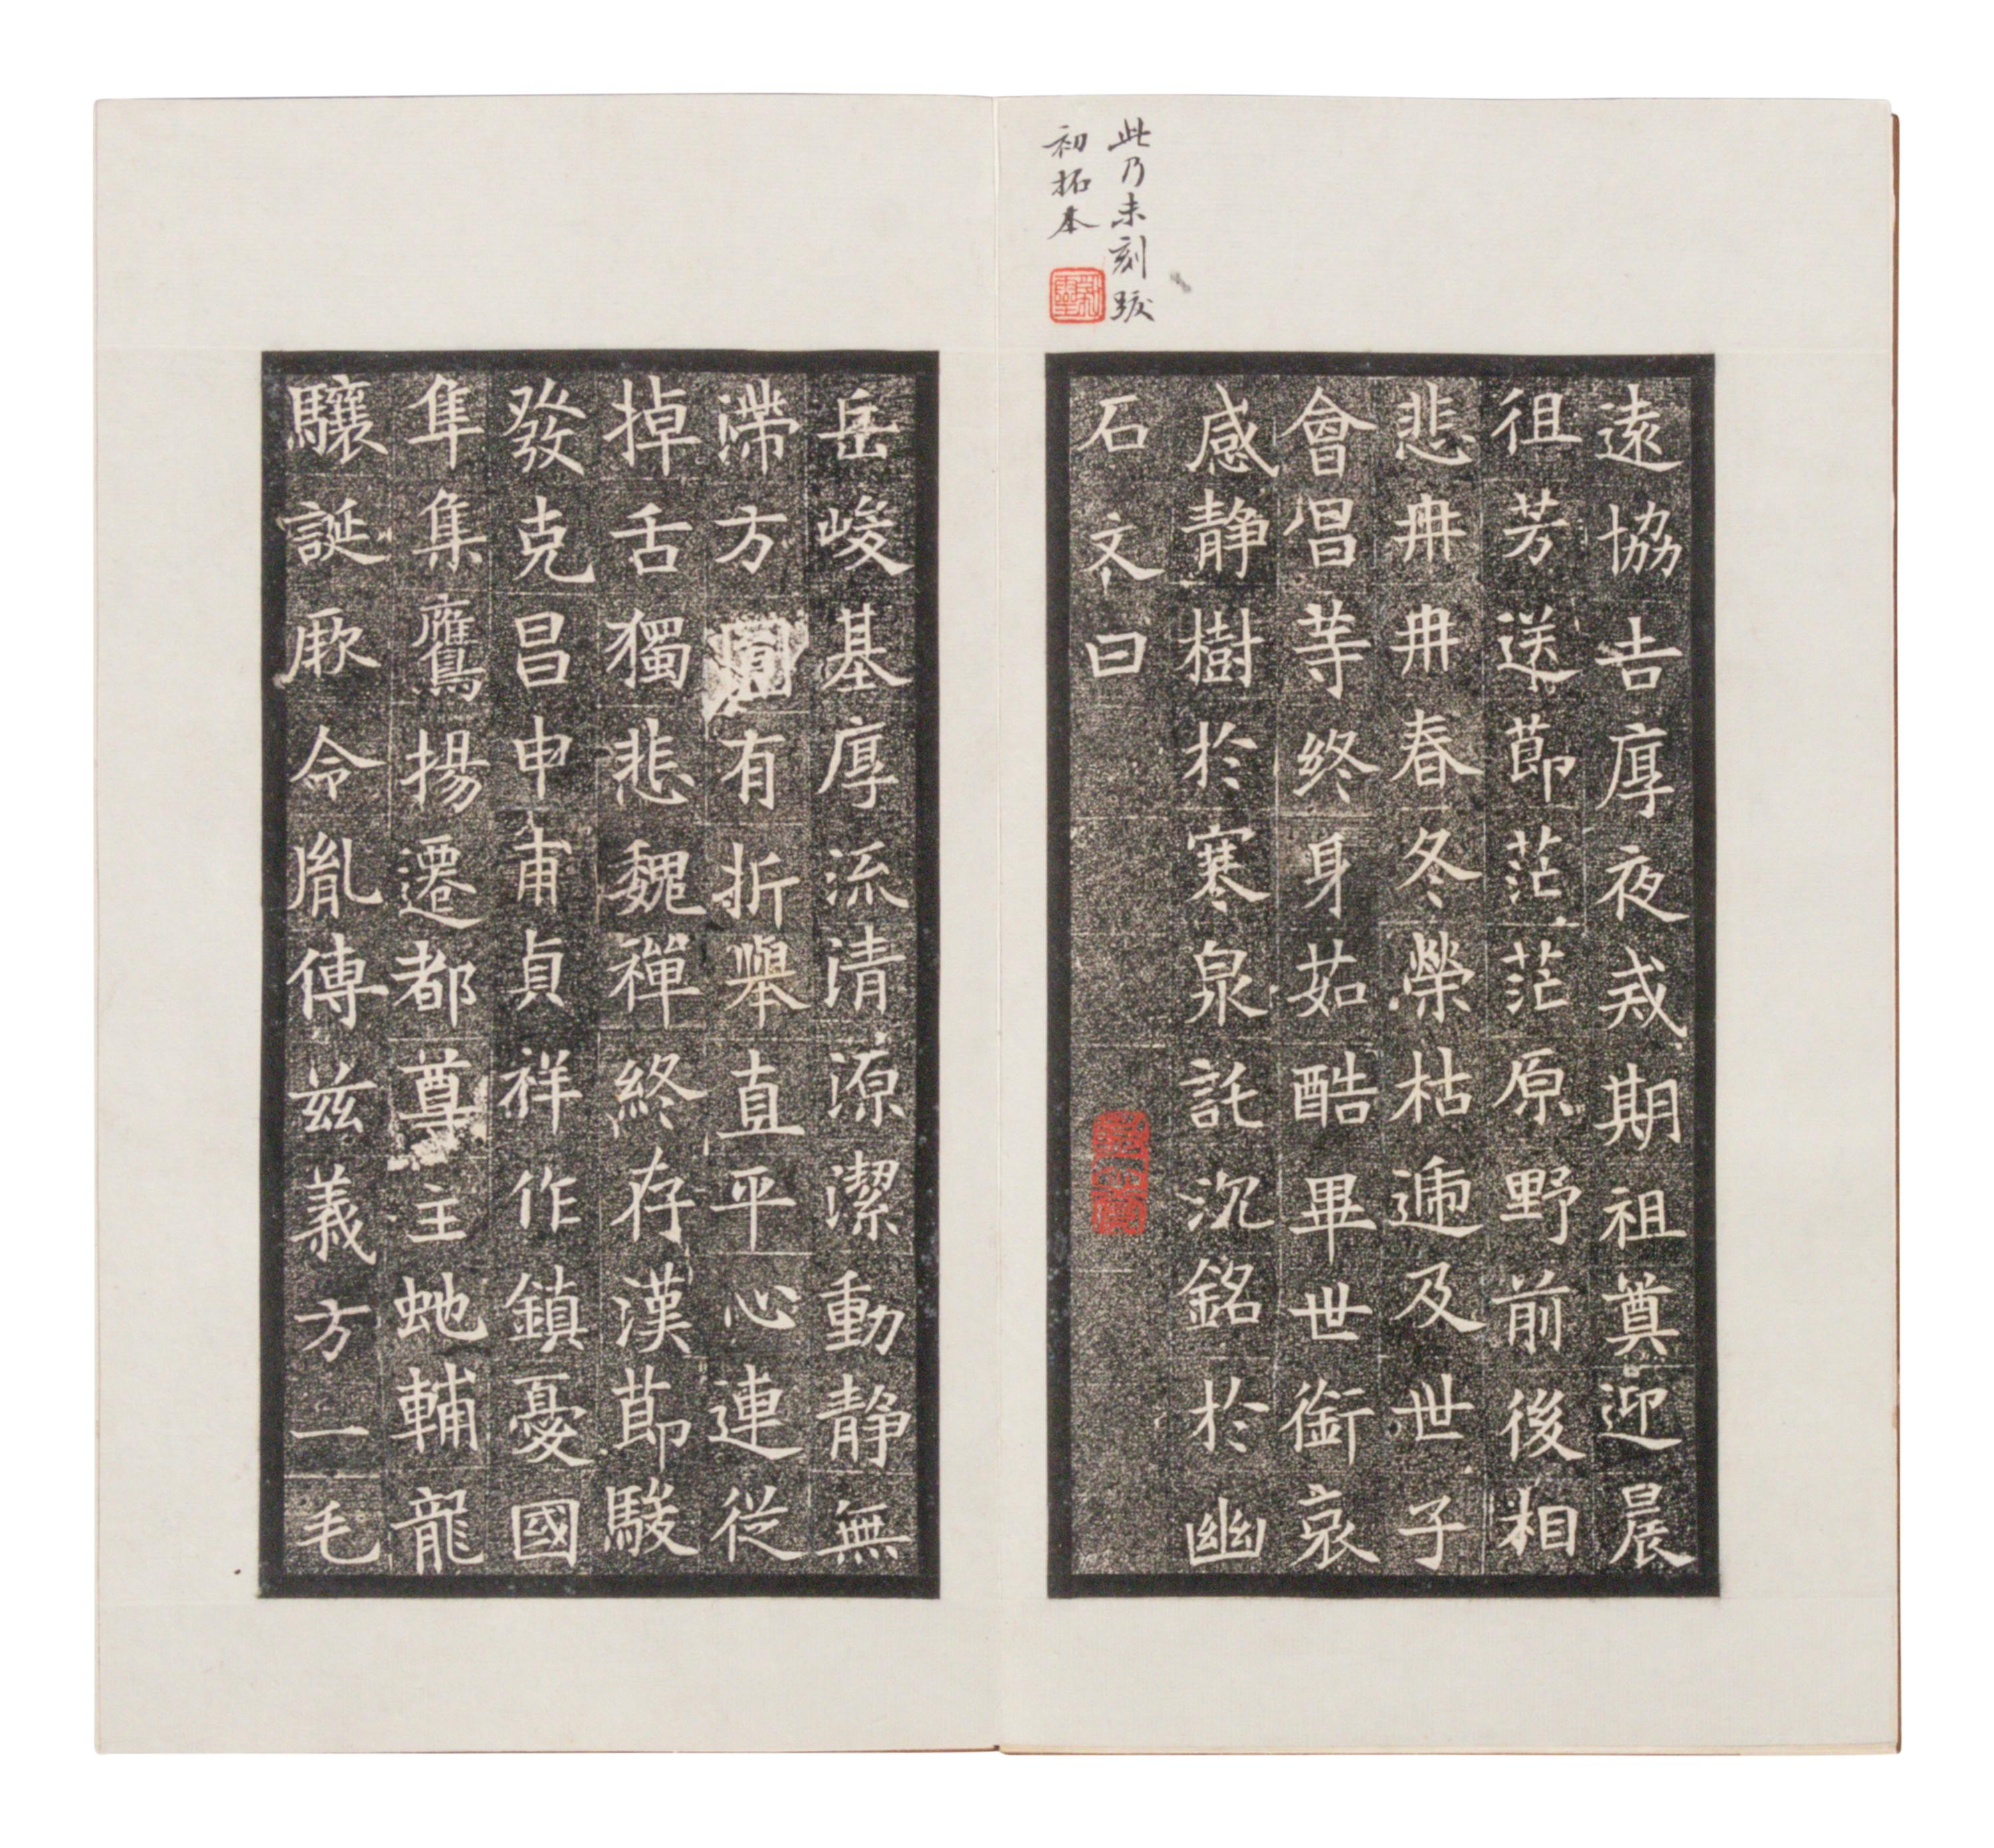 此乃未刻跋
初拓本
遠協吉厚夜戒期祖奠迎晨
徂芳送節茫茫原野前後相
悲冉冉春冬榮枯遞及世子
會昌等終身茹酷畢世銜哀
感静樹於寒泉託沉銘於幽
石文曰
岳峻基厚流清源潔動静無
滯方圓有折舉直平心連從
掉舌獨悲魏禪終存漢節駿
發克昌申甫貞祥作鎮憂國
隼集鷹揚遷都尊主虵輔龍
驤誕厥命胤傳兹義方一毛